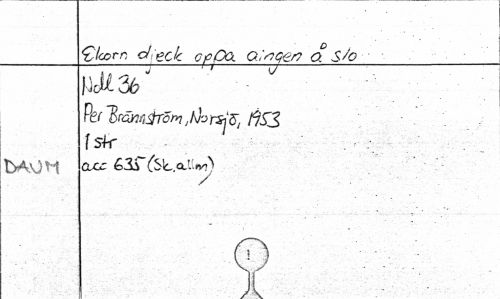 Ekorn djeck oppa aingen å slo
Ndl 36
Per Brännström, Norsjö, 1953
1 str
DAUM acc 635 (Sk. allm)
1